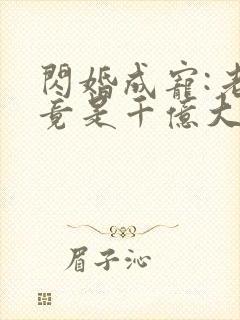 閃婚成寵:老
竟是千億大
眉子沁